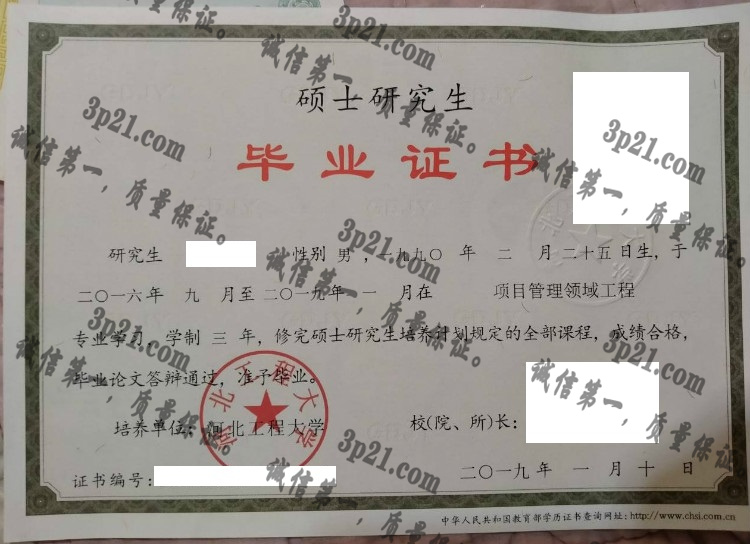 硕士研究生
毕业证书
研究生 性别 男，一九九〇 年 二 月二十五日生，于
二〇一六年 九 月至二〇一九年 一 月在 项目管理领域工程
专业学习，学制 三 年，修完硕士研究生培养计划规定的全部课程，成绩合格，
毕业论文答辩通过，准予毕业。
培养单位：河北工程大学
校(院、所)长：
河北工程大学
证书编号：
二〇一九年 一 月 十 日
中华人民共和国教育部学历证书查询网址：http://www.chsi.com.cn
3p21.com
诚信第一，质量保证。
3p21.com
诚信第一，质量保证。
3p21.com
诚信第一，质量保证。
3p21.com
诚信第一，质量保证。
3p21.com
诚信第一，质量保证。
3p21.com
诚信第一，质量保证。
3p21.com
诚信第一，质量保证。
3p21.com
诚信第一，质量保证。